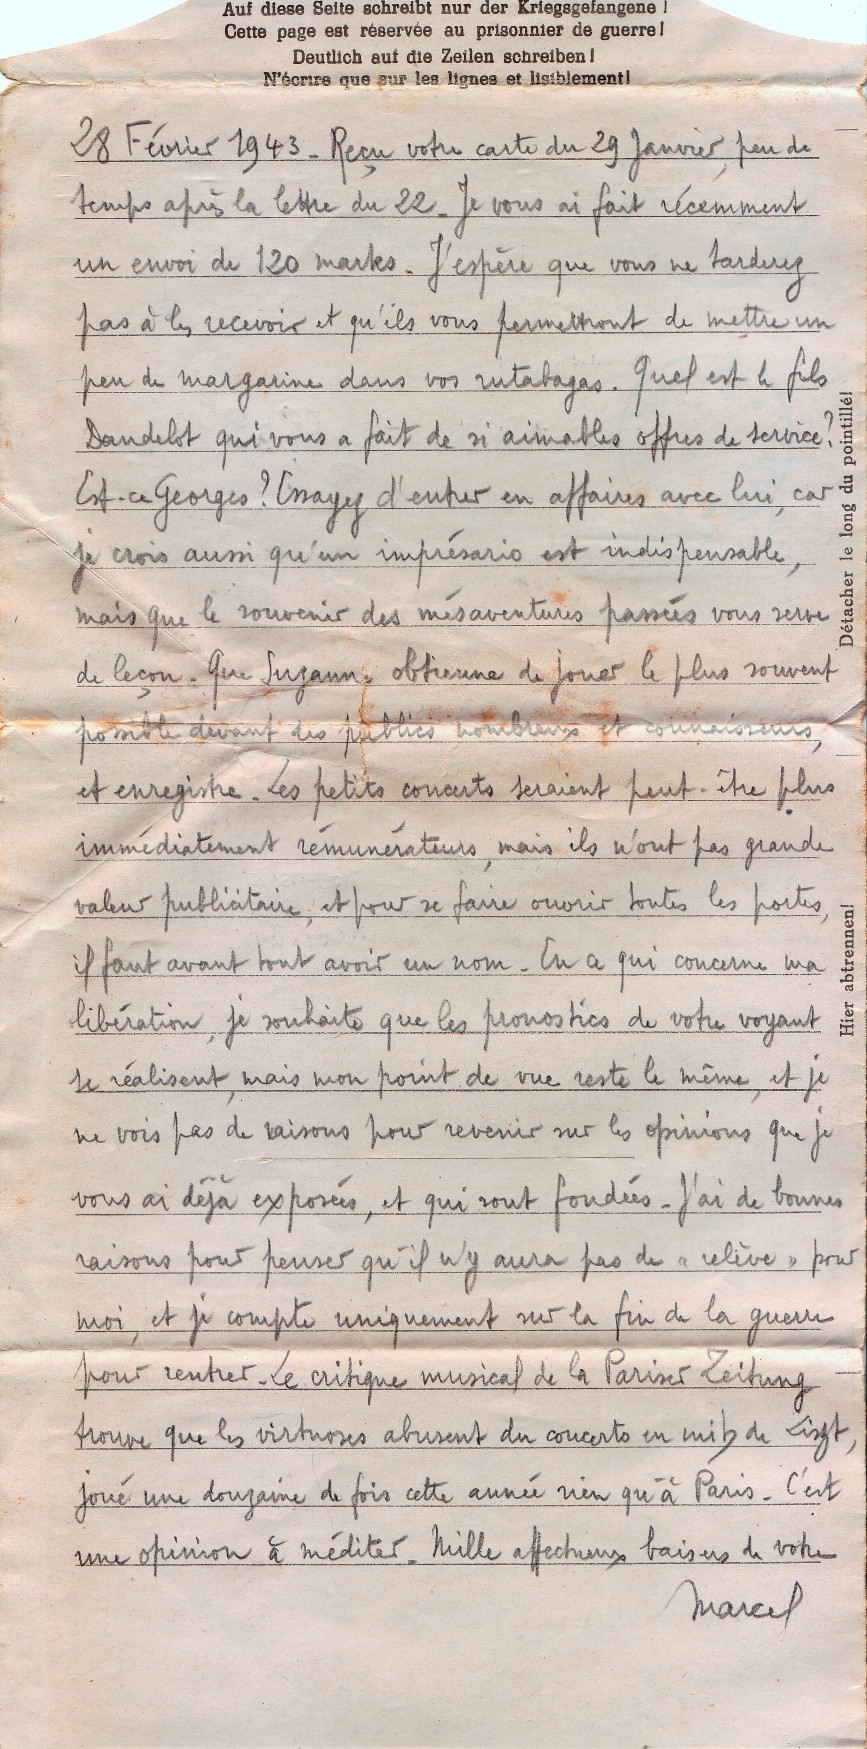 Auf diese Seite schreibt nur der Kriegsgefangene !
Cette page est réservée au prisonnier de guerre !
Deutlich auf die Zeilen schreiben !
N'écrire que sur les lignes et lisiblement !
28 Février 1943 - Reçu votre carte du 29 Janvier, peu de
temps après la lettre du 22 - Je vous ai fait récemment
un envoi de 120 marks. J'espère que vous ne tarderez
pas à les recevoir et qu'ils vous permettront de mettre un
peu de margarine dans vos rutabagas. Quel est le fils
Dandelot qui vous a fait de si aimables offres de service ?
Est-ce Georges ? Essayez d'entrer en affaires avec lui, car
je crois aussi qu'un imprésario est indispensable,
mais que le souvenir des mésaventures passées vous serve
de leçon - Que Suzanne obtienne de jouer le plus souvent
possible devant des publics nombreux et connaisseurs,
et enregistre - Les petits concerts seraient peut-être plus
immédiatement rémunérateurs, mais ils n'ont pas grande
valeur publicitaire, et pour se faire ouvrir toutes les portes,
il faut avant tout avoir un nom - En ce qui concerne ma
libération, je souhaite que les pronostics de votre voyant
se réalisent, mais mon point de vue reste le même, et je
ne vois pas de raisons pour revenir sur les opinions que je
vous ai déjà exposées, et qui sont fondées - J'ai de bonnes
raisons pour penser qu'il n'y aura pas de « relève » pour
moi, et je compte uniquement sur la fin de la guerre
pour rentrer - Le critique musical de la Pariser Zeitung
trouve que les virtuoses abusent du concerto en mi♭ de Liszt,
joué une douzaine de fois cette année rien qu'à Paris - C'est
une opinion à méditer - Mille affectueux baisers de votre
Marcel
Détacher le long du pointillé!
Hier abtrennen!